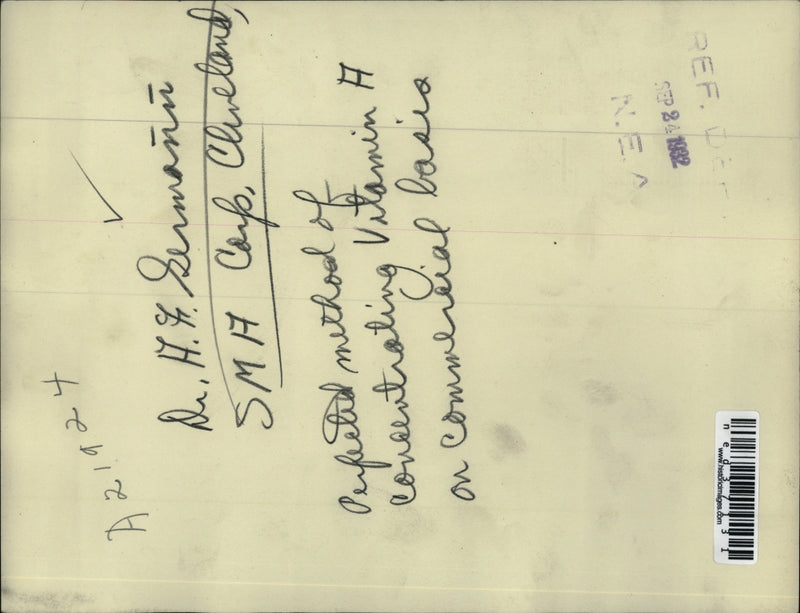 A21924
Dr. H. F. Germann
SMA Corp, Cleveland,
Perfected method of
concentrating Vitamin A
on commercial basis
REF. DEP
SEP 24 1932
N. E. A
ned37131
www.historicimages.com